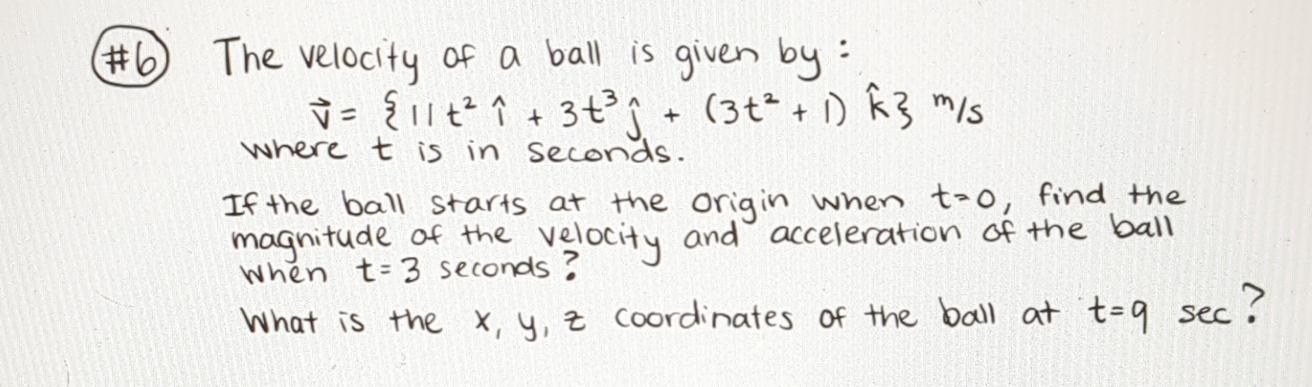 #6 The velocity of a ball is given by :
v⃗ = {11t² î + 3t³ ĵ + (3t² + 1) k̂} m/s
where t is in seconds.
If the ball starts at the origin when t=0, find the
magnitude of the velocity and acceleration of the ball
when t=3 seconds?
What is the x, y, z coordinates of the ball at t=9 sec?